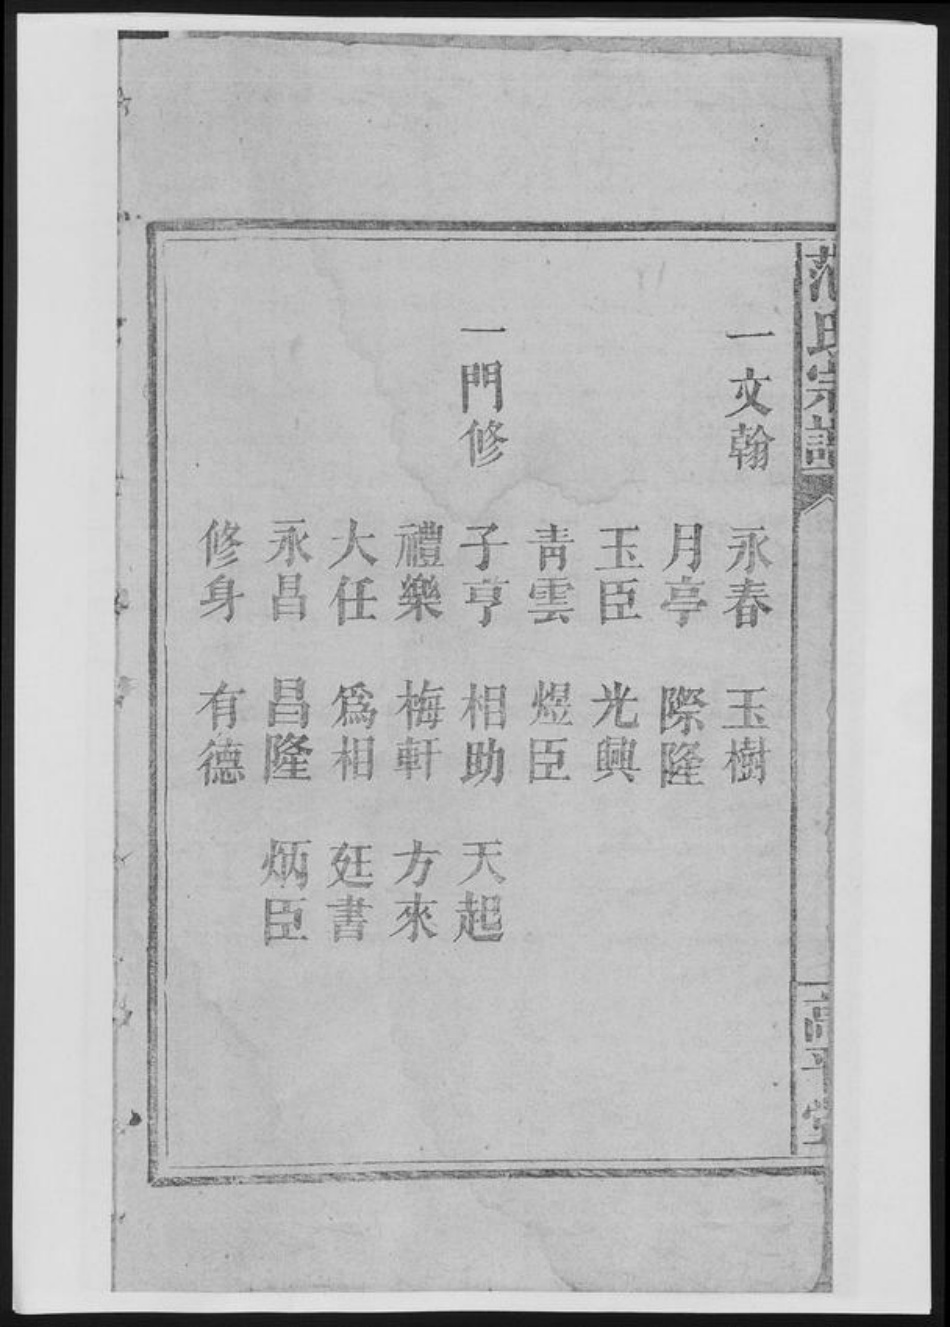 范氏宗譜
高平堂
一文翰 永春 玉樹
月亭 際隆
玉臣 光興
青雲 煜臣
一門修 子亨 相助 天起
禮樂 梅軒 方來
大任 爲相 廷書
永昌 昌隆 炳臣
修身 有德